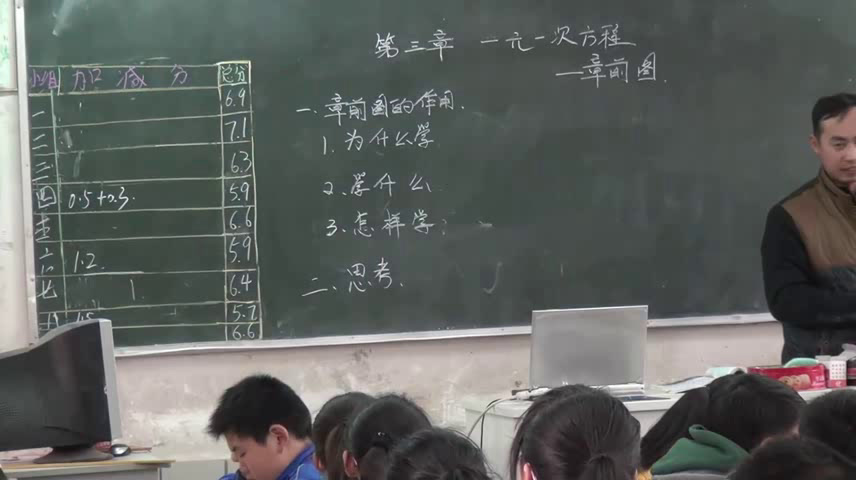 第三章 一元一次方程
—章前图.
一.章前图的作用.
1.为什么学
2.学什么
3.怎样学:
二.思考.
小组 加 减 分 总分
一 6.9
二 7.1
三 6.3
四 0.5+0.3. 5.9
五 6.6
六 1.2. 5.9
七 1 6.4
5.7
6.6